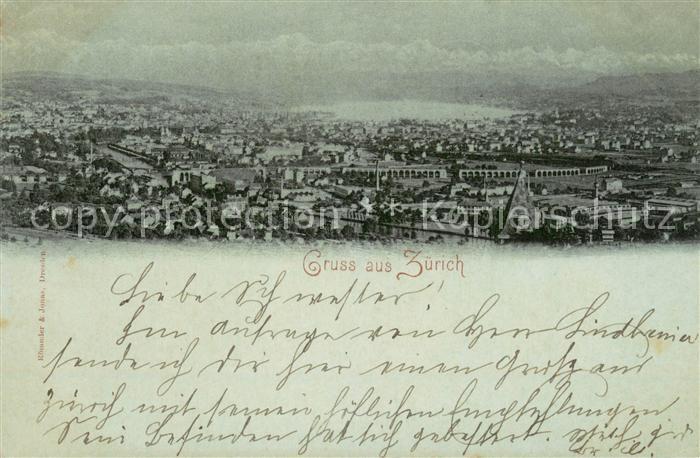 copy protection ☆ Kopierschutz
Gruss aus Zürich
Römmler & Jonas, Dresden
Liebe Schwester!
Im Auftrage von Herr
sende ich dir hier einen Gruß aus
Zürich mit seinen höflichen Empfehlungen
Sein Befinden hat sich gebessert.